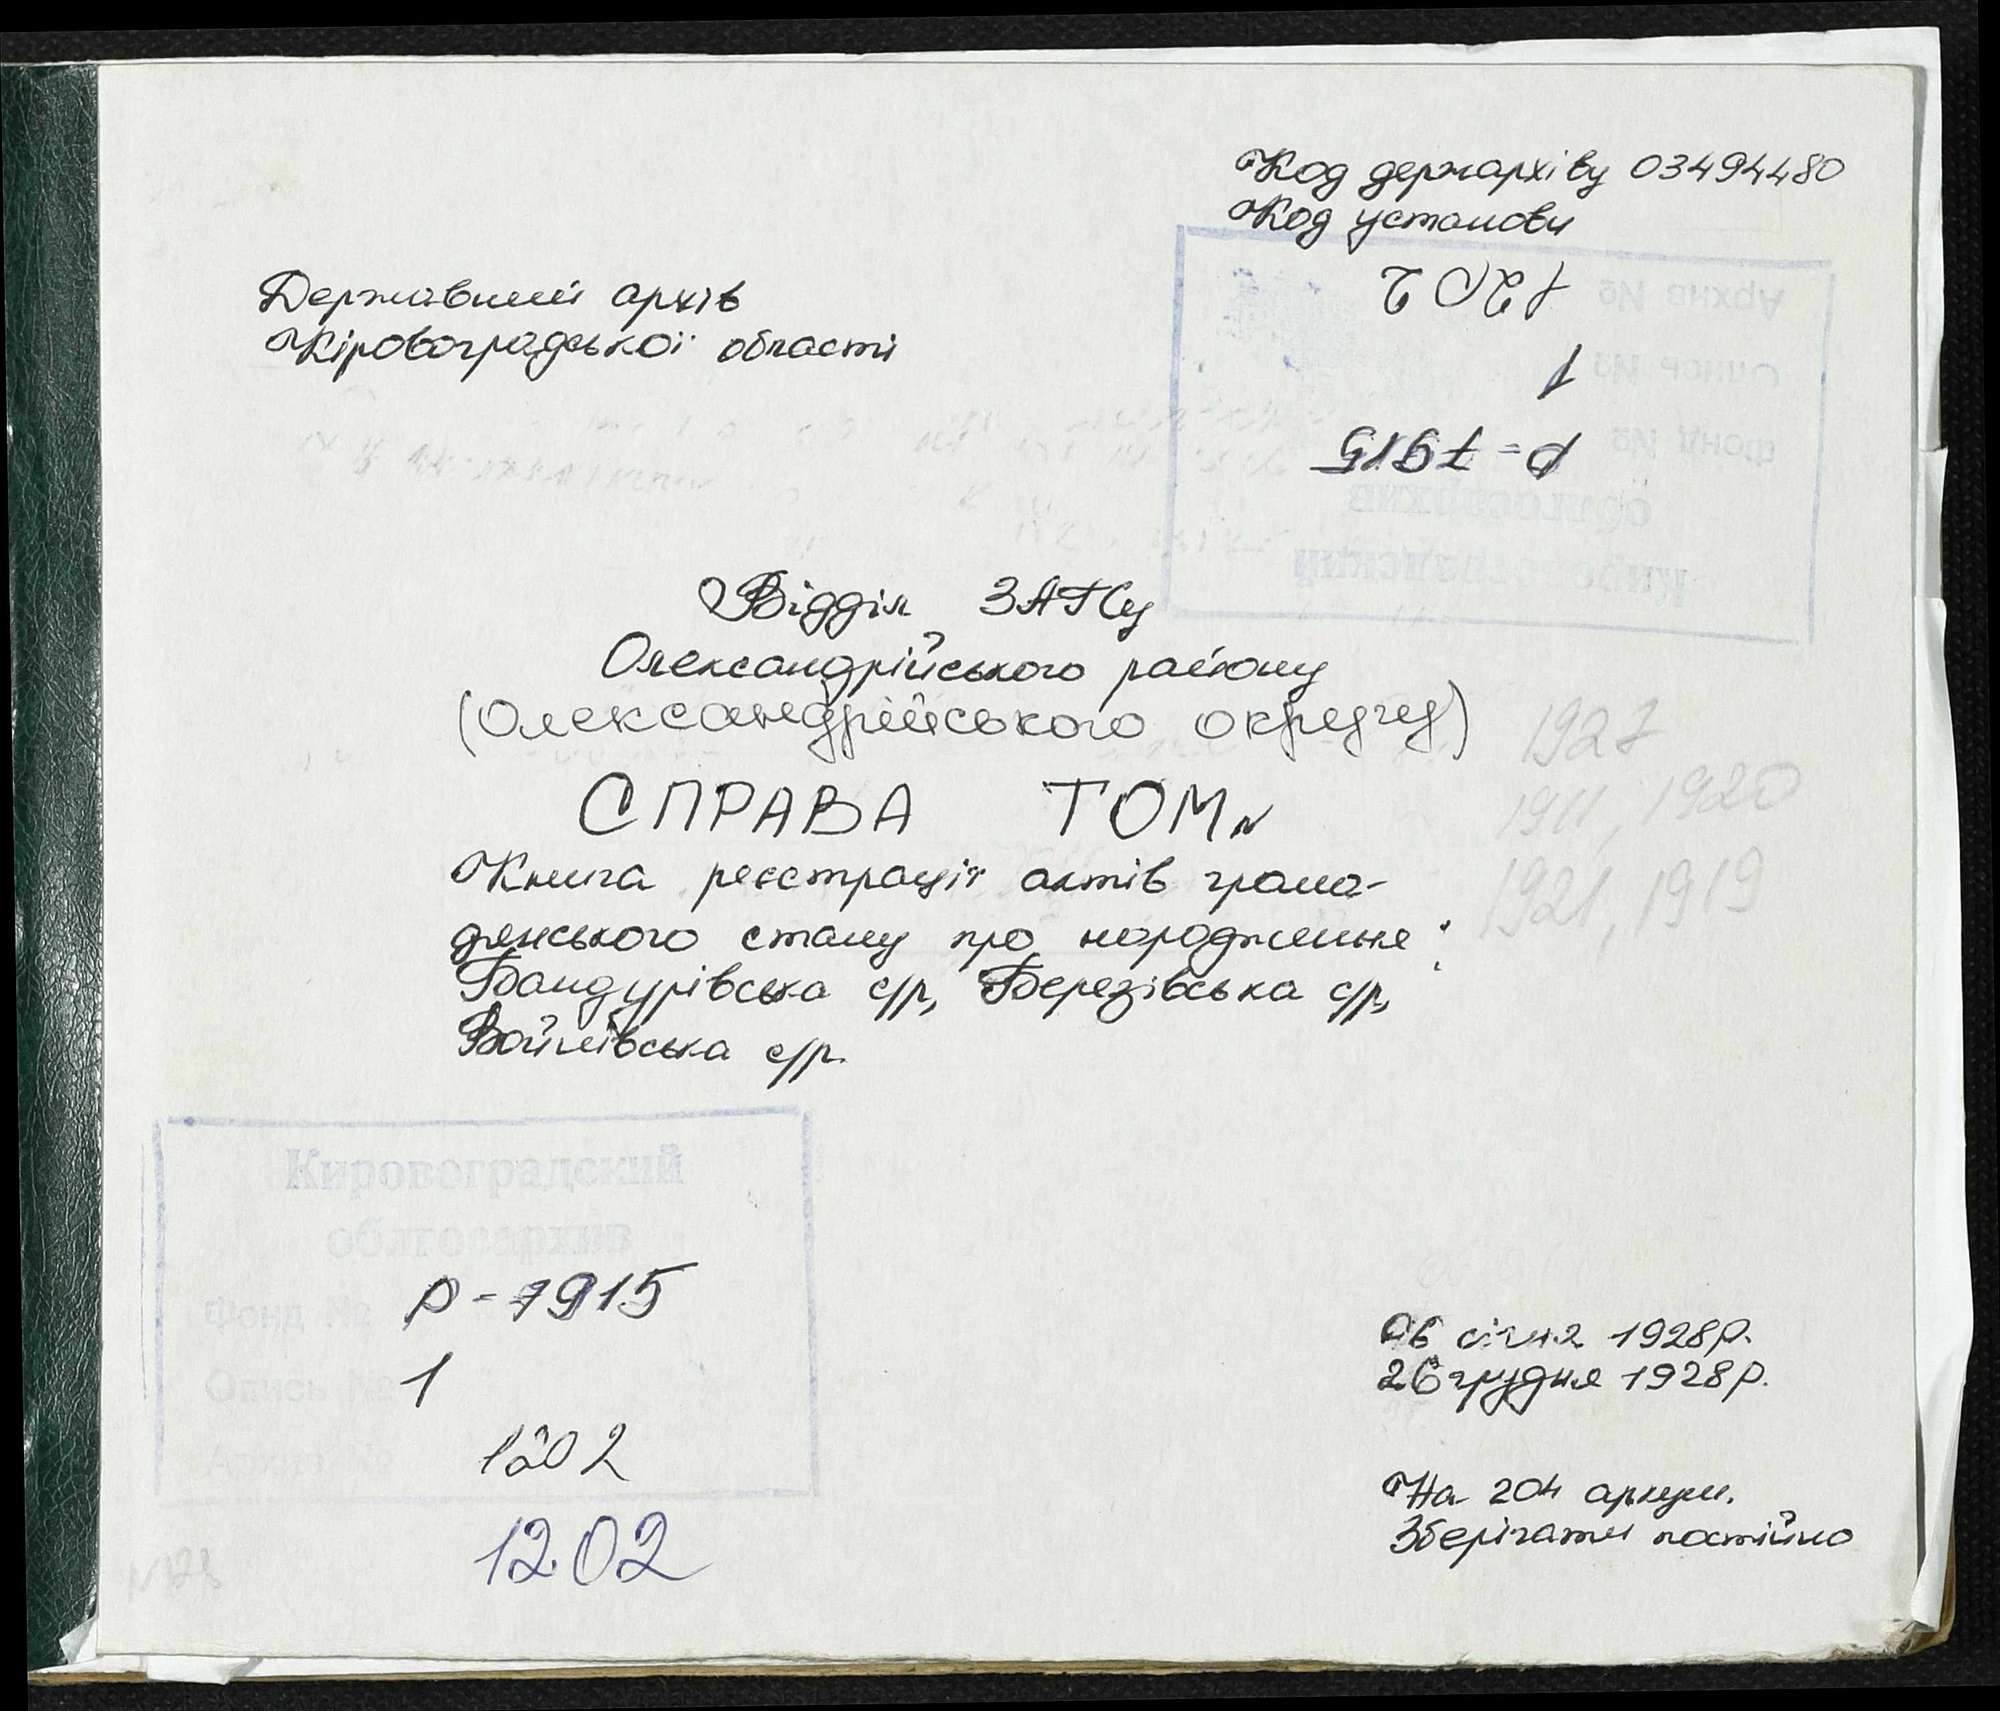 Код держархіву 03494480
Код установи
Державний архів
Кіровоградської області
Архив №
1202
Опись №
1
Фонд №
Р-7915
облгосархив
Кировоградский
Відділ ЗАГСу
Олександрійського району
(Олександрійського округу)
1927
СПРАВА ТОМ №
1911, 1920
Книга реєстрації актів грома-
1921, 1919
дянського стану про народження:
Бандурівська с/р, Березівська с/р,
Войнівська с/р.
Кировоградский
облгосархив
Фонд № Р-7915
Опись № 1
Архив № 1202
1202
06 січня 1928р.
26 грудня 1928р.
На 204 аркуш.
Зберігати постійно